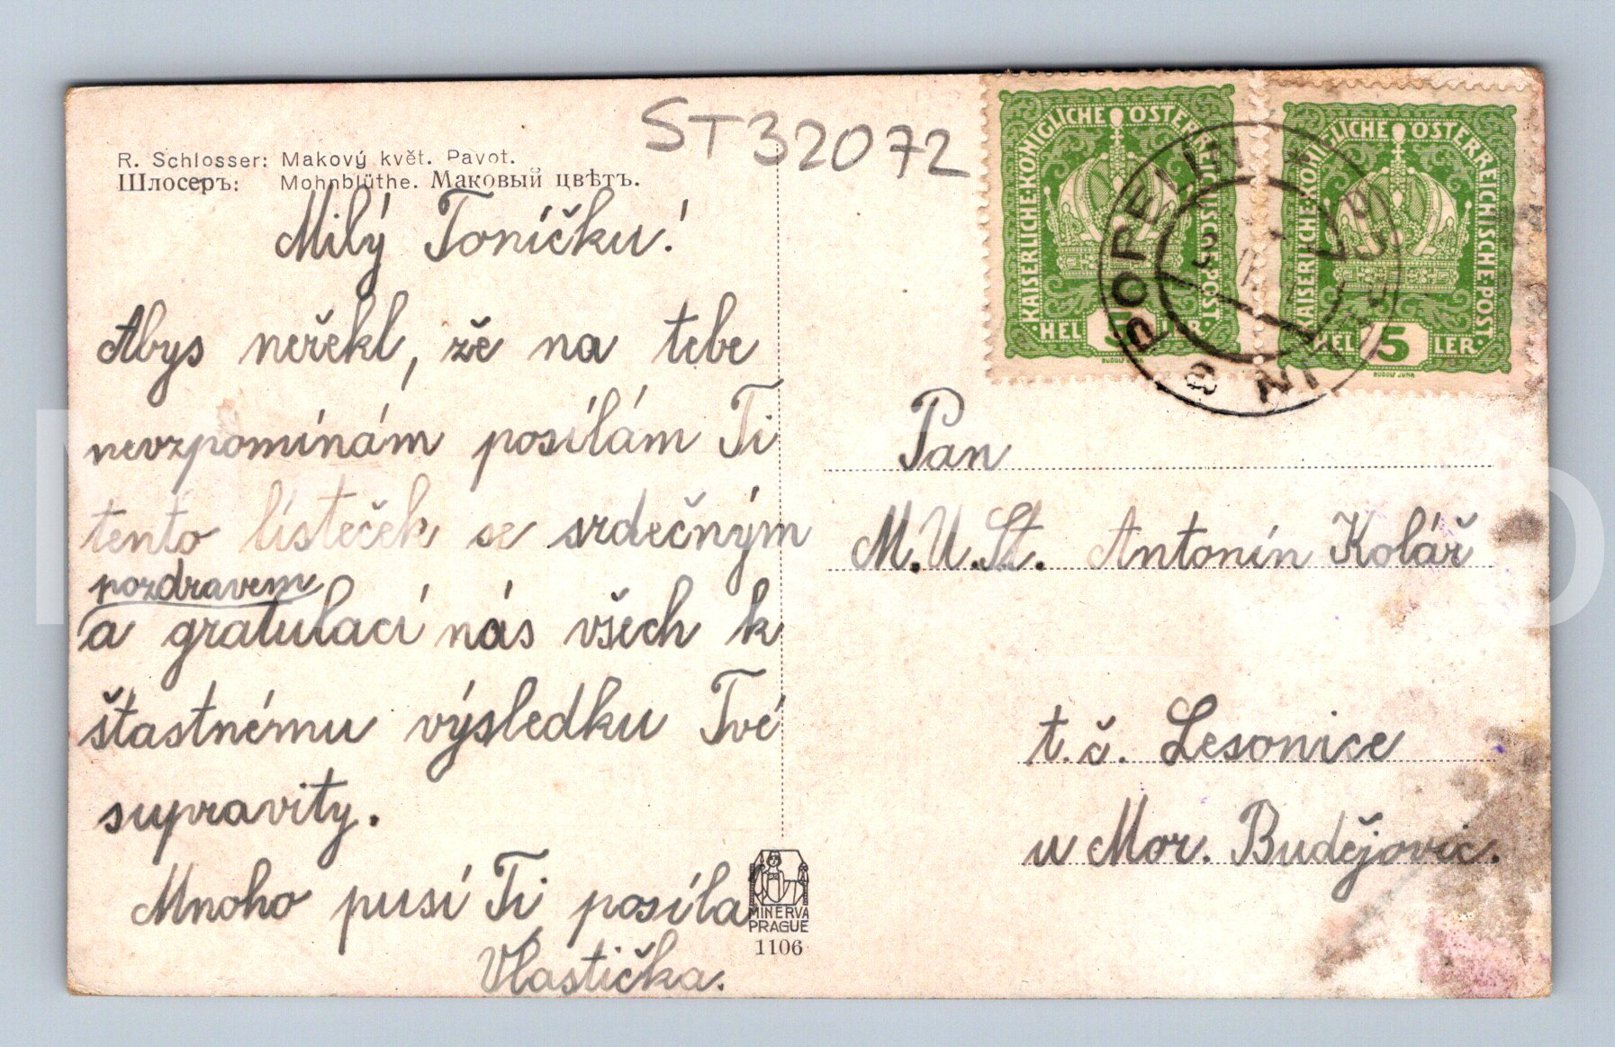 ST32072
R. Schlosser: Makový květ. Pavot.
Шлосеръ: Mohnblüthe. Маковый цвѣтъ.
Milý Toníčku!
Abys neřekl, že na tebe
nevzpomínám posílám Ti
tento lísteček se srdečným
pozdravem
a gratulací nás všech k
štastnému výsledku Tvé
supravity.
Mnoho pusí Ti posílá
Vlastička.
MINERVA
PRAGUE
1106
KAISERLICHE·KÖNIGLICHE ÖSTERREICHISCHE·POST·
·HEL 5 LER·
RUDOLF JUNK
KAISERLICHE·KÖNIGLICHE ÖSTERREICHISCHE·POST·
HEL 5 LER·
RUDOLF JUNK
Pan
M.U.St. Antonín Kolář
t.č. Lesonice
u Mor. Budějovic.